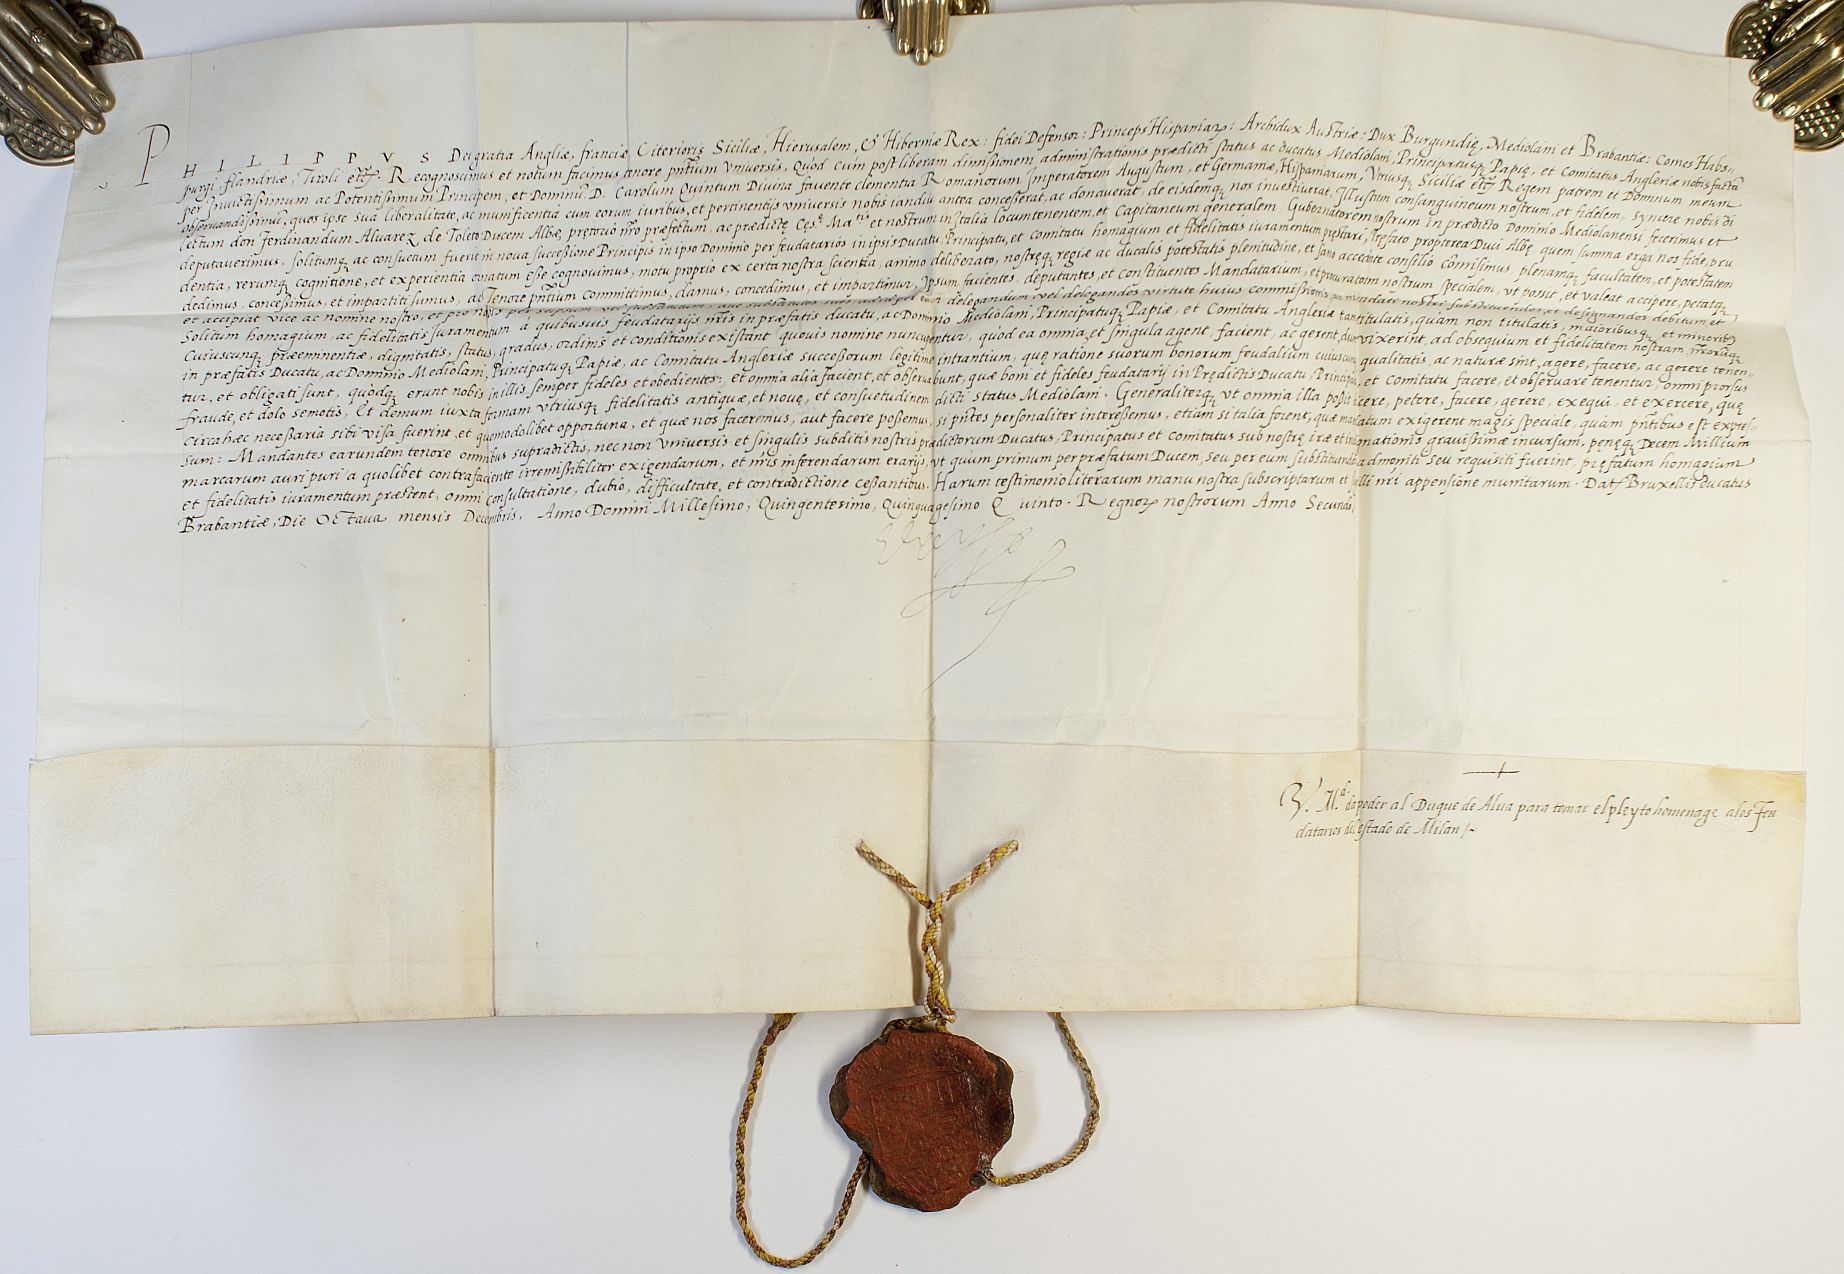 PHILIPPVS Dei gratia Angliæ, franciæ Citerioris Siciliæ, Hierusalem, & Hiberniæ Rex: fidei Defensor: Princeps Hispaniaꝝ: Archidux Austriæ: Dux Burgundię, Mediolani et Brabantiæ: Comes Habs-
purgi, flandriæ, Tiroli etc̄. Recognoscimus et notum facimus tenore p̄ntium Vniuersis, Quòd cùm post liberam dimissionem administrationis prædicti status ac ducatus Mediolani, Principatusqꝫ Papię, et Comitatus Angleriæ nobis factā
per Inuictissimum ac Potentissimum Principem, et Dominū D. Carolum Quintum Diuina fauente clementia Romanorum Imperatorem Augustum, et Germaniæ, Hispaniarum, Vtriusqꝫ Siciliæ etc̄ Regem patrem et Domnum meum
obseruandissimū, quos ipse sua liberalitate, ac munificentia cum eorum iuribus, et pertinentijs vniuersis nobis iandiu antea concesserat, ac donauerat, de eisdemqꝫ nos inuestiuerat, Illustum consanguineum nostrum, et fidelem, syncere nobis di
lectum don Ferdinandum Aluarez de Toleto Ducem Albæ, prętorio nr̄o præfectum, ac prædictę Cęs.ę Ma.tis et nostrum in Italia locumtenentem, et Capitaneum generalem, Gubernatorem nostrum in prædicto Dominio Mediolanensi fecerimus et
deputauerimus, solitumqꝫ ac consuetum fuerit in noua successione Principis in ipso Dominio per feudatarios in ipsis Ducatu, Principatu, et comitatu homagium et fidelitatis iuramentum pręstari, Pręfato propterea Duci Albę, quem summa erga nos fide, pru
dentia, rerumqꝫ cognitione, et experientia ornatum esse cognouimus, motu proprio ex certa nostra scientia, animo deliberato, nostręqꝫ regiæ ac ducalis potestatis plenitudine, et sano accedente consilio commisimus, plenamqꝫ facultatem, et potestatem
dedimus, concessimus, et impartiti sumus, ac Tenore p̄ntium committimus, damus, concedimus, et impartimur, Ipsum facientes, deputantes, et constituentes Mandatarium, et procuratorem nostrum specialem, vt possit, et valeat accipere, petatqꝫ
et accipiat vice ac nomine nostro, et pro nobis per seipsum vel substituendos suos ad id per eum delegandum, vel delegandos virtute huius commissionis ac mandati nostri substituendos, et designandos debitum et
solitum homagium, ac fidelitatis iuramentum à quibusuis feudatarijs nr̄is in præfatis ducatu, ac Dominio Mediolani, Principatuqꝫ Papiæ, et Comitatu Angleriæ tam titulatis, quàm non titulatis, maioribusqꝫ et minoribꝫ
Cuiuscunqꝫ præeminentiæ, dignitatis, status, gradus, ordinis et conditionis existant quouis nomine nuncupentur, quòd ea omnia, et singula agent, facient, ac gerent, dum vixerint, ad obsequium et fidelitatem nostram, nr̄orumqꝫ
in præfatis Ducatu, ac Dominio Mediolani, Principatuqꝫ Papiæ, ac Comitatu Angleriæ successorum legitime intrantium, quę ratione suorum bonorum feudalium cuiuscunqꝫ qualitatis, ac naturæ sint, agere, facere, ac gerere tenen-
tur, et obligati sunt, quòdqꝫ erunt nobis in illis semper fideles et obedientes: et omnia alia facient, et obseruabunt, quæ boni et fideles feudatarij in Prędictis Ducatu, Principatu, et Comitatu facere, et obseruare tenentur, omni prorsus
fraude, et dolo semotis, Et demum iuxta formam vtriusqꝫ fidelitatis antiquæ, et nouę, et consuetudinem dicti status Mediolani. Generaliterqꝫ vt omnia illa possit dicere, petere, facere, gerere, exequi, et exercere, quę
circa hæc necessaria sibi visa fuerint, et quomodolibet opportuna, et quæ nos faceremus, aut facere possemus, si p̄ntes personaliter interessemus, etiam si talia forent, quæ mandatum exigerent magis speciale, quàm p̄ntibus est expres-
sum: Mandantes earundem tenore omnibus supradictis, nec non vniuersis et singulis subditis nostris prædictorum Ducatus, Principatus et Comitatus sub nostrę iræ et indignationis grauissimæ incursum, penęqꝫ Decem Millium
marcarum auri puri a quolibet contrafaciente irremissibiliter exigendarum, et nr̄is inferendarum erarijs, vt quùm primum per præfatum Ducem, seu per eum substituendos admoniti seu requisiti fuerint, pręfatum homagium
et fidelitatis iuramentum præstent, omni consultatione, dubio, difficultate, et contradictione cessantibus. Harum testimonio literarum manu nostra subscriptarum et sigilli nr̄i appensione munitarum. Datꝫ Bruxellis ducatus
Brabantiæ, Die Octaua mensis Decembris, Anno Domini Millesimo, Quingentesimo, Quinquagesimo Quinto. Regnoꝝ nostrorum Anno Secundo.
V. M.d da poder al Duque de Alua para tomar el pleyto homenage a los Feu
datarios del estado de Milan